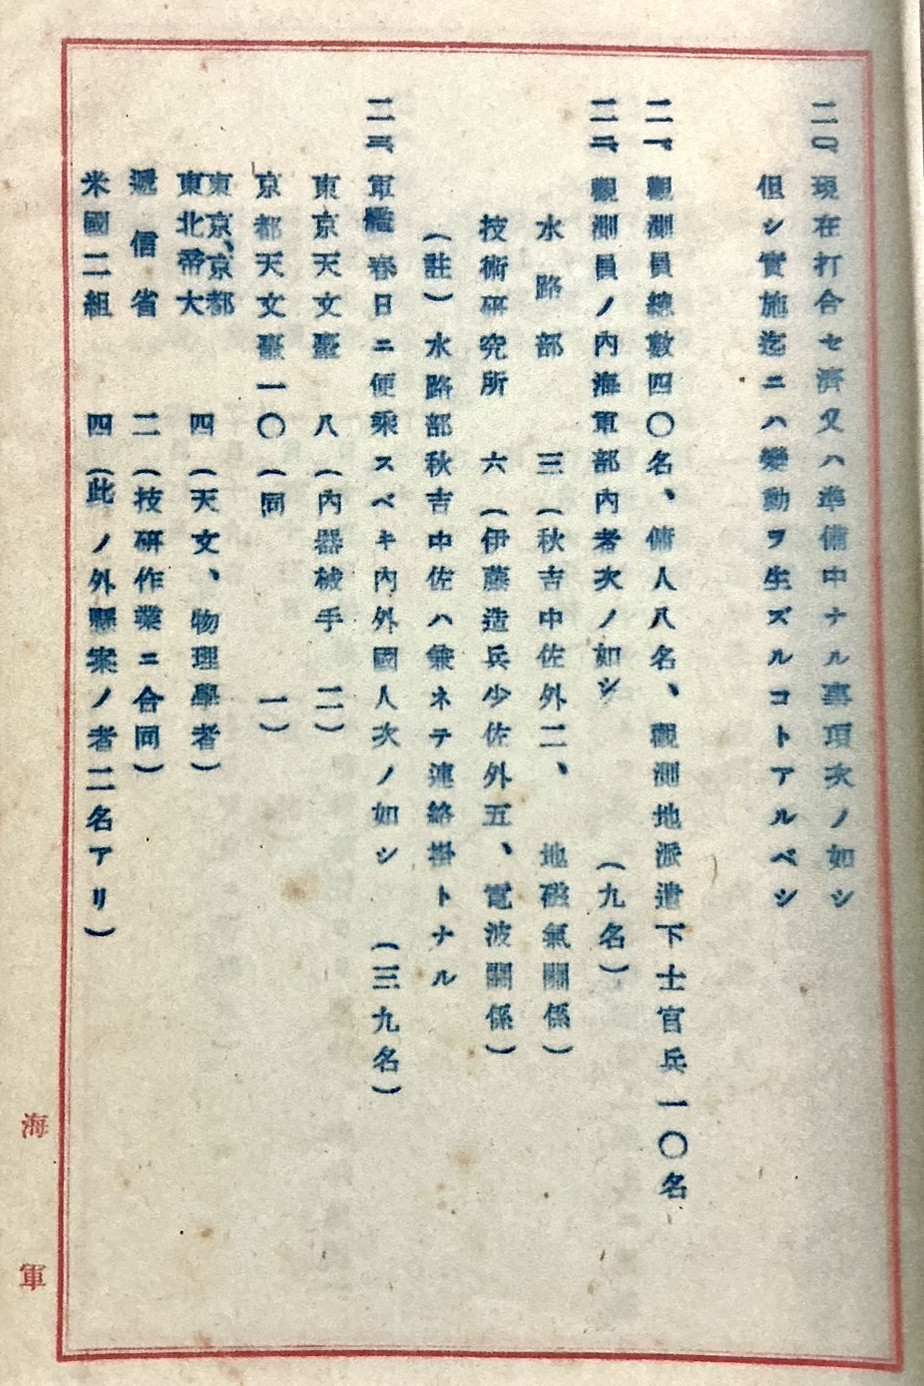 二〇、現在打合セ濟又ハ準備中ナル事項次ノ如シ
但シ實施迄ニハ變動ヲ生ズルコトアルベシ
二一、觀測員總數四〇名、傭人八名、觀測地派遣下士官兵一〇名
二二、觀測員ノ內海軍部內者次ノ如シ (九名)
水路部 三 (秋吉中佐外二、 地磁氣關係)
技術硏究所 六 (伊藤造兵少佐外五、電波關係)
(註) 水路部秋吉中佐ハ兼ネテ連絡掛トナル
二三、軍艦春日ニ便乘スベキ內外國人次ノ如シ (三九名)
東京天文臺 八 (內器械手 二)
京都天文臺 一〇 (同 一)
東京、京都
東北帝大 四 (天文、物理學者)
遞信省 二 (技硏作業ニ合同)
米國二組 四 (此ノ外懸案ノ者二名アリ)
海軍